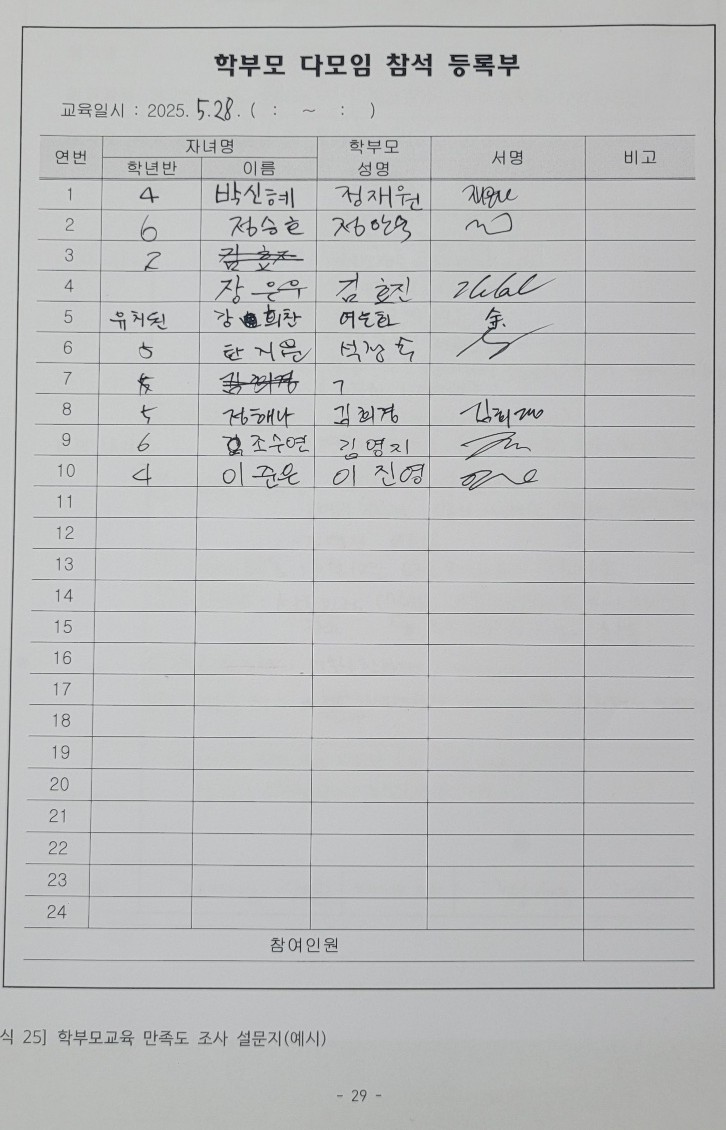 학부모 다모임 참석 등록부
교육일시 : 2025. 5.28. ( : ~ : )
연번 자녀명 학부모 성명 서명 비고
학년반 이름
1 4 박신혜 정재원
2 6 정승호
3 2
4 장은우 김효진
5 유치원 강희찬
6 5
7
8 5 정해나 김희경
9 6 조수연 김영지
10 4 이준은 이진영
11
12
13
14
15
16
17
18
19
20
21
22
23
24
참여인원
식 25] 학부모교육 만족도 조사 설문지(예시)
- 29 -